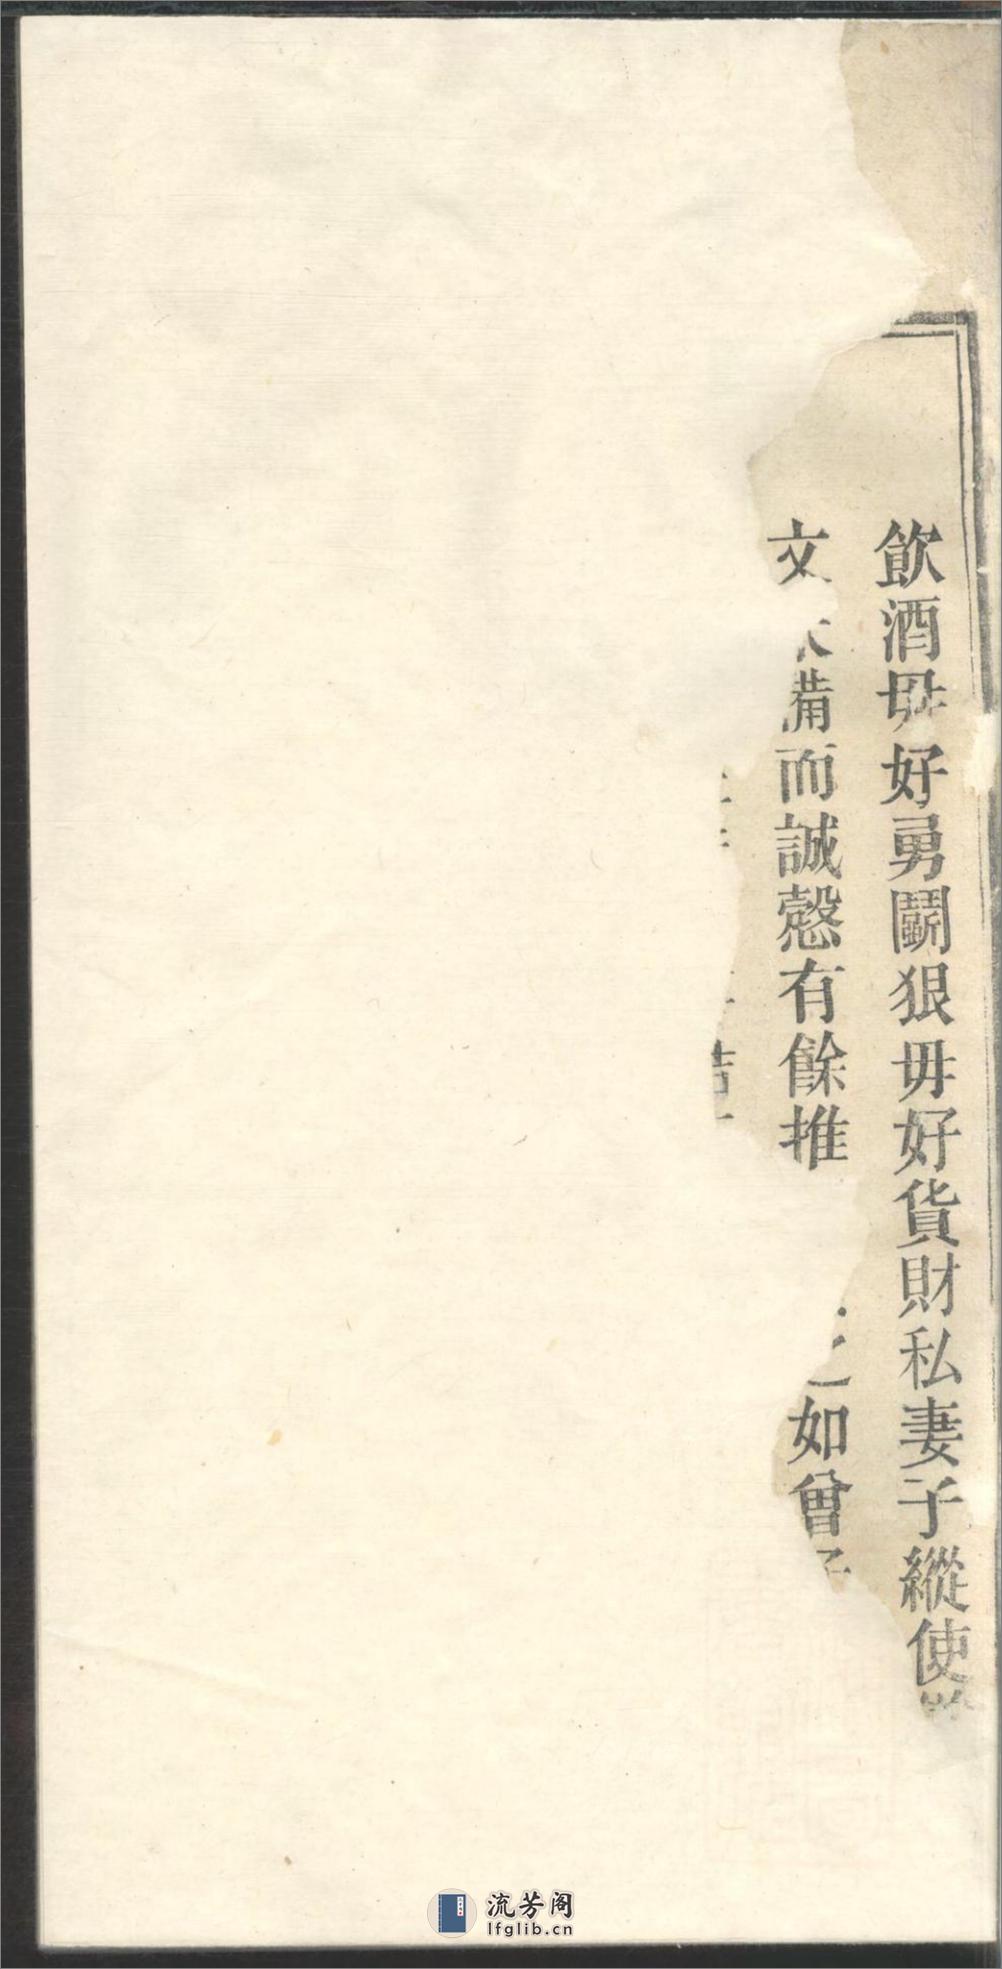 飲酒毋好勇鬪狠毋好貨財私妻子縱使
文備而誠慤有餘推
之如曾
流芳阁
lfglib.cn